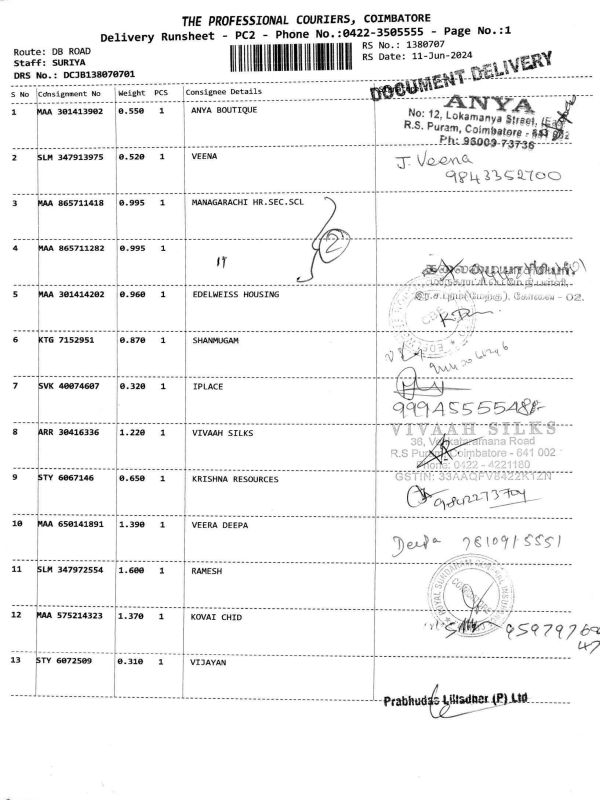 THE PROFESSIONAL COURIERS, COIMBATORE
Delivery Runsheet - PC2 - Phone No.:0422-3505555 - Page No.:1
Route: DB ROAD
Staff: SURIYA
DRS No.: DCJB138070701
RS No.: 1380707
RS Date: 11-Jun-2024
DOCUMENT DELIVERY
S No Consignment No Weight PCS Consignee Details
1 MAA 301413902 0.550 1 ANYA BOUTIQUE
ANYA
No: 12, Lokamanya Street,
R.S. Puram, Coimbatore -
Ph: 96009 73736
2 SLM 347913975 0.520 1 VEENA
J. Veena
9843352700
3 MAA 865711418 0.995 1 MANAGARACHI HR.SEC.SCL
2
4 MAA 865711282 0.995 1
11
தலைமையாசிரியர்
இர.ச.புரம்(மேற்கு), கோவை - 02.
5 MAA 301414202 0.960 1 EDELWEISS HOUSING
6 KTG 7152951 0.870 1 SHANMUGAM
7 SVK 40074607 0.320 1 IPLACE
8 ARR 30416336 1.220 1 VIVAAH SILKS
VIVAAH SILKS
36, Venkataramana Road
R.S Puram, Coimbatore - 641 002
Phone: 0422 - 4221180
9 STY 6067146 0.650 1 KRISHNA RESOURCES
10 MAA 650141891 1.390 1 VEERA DEEPA
Deepa 7810915551
11 SLM 347972554 1.600 1 RAMESH
12 MAA 575214323 1.370 1 KOVAI CHID
13 STY 6072509 0.310 1 VIJAYAN
Prabhudas Lilladher (P) Ltd